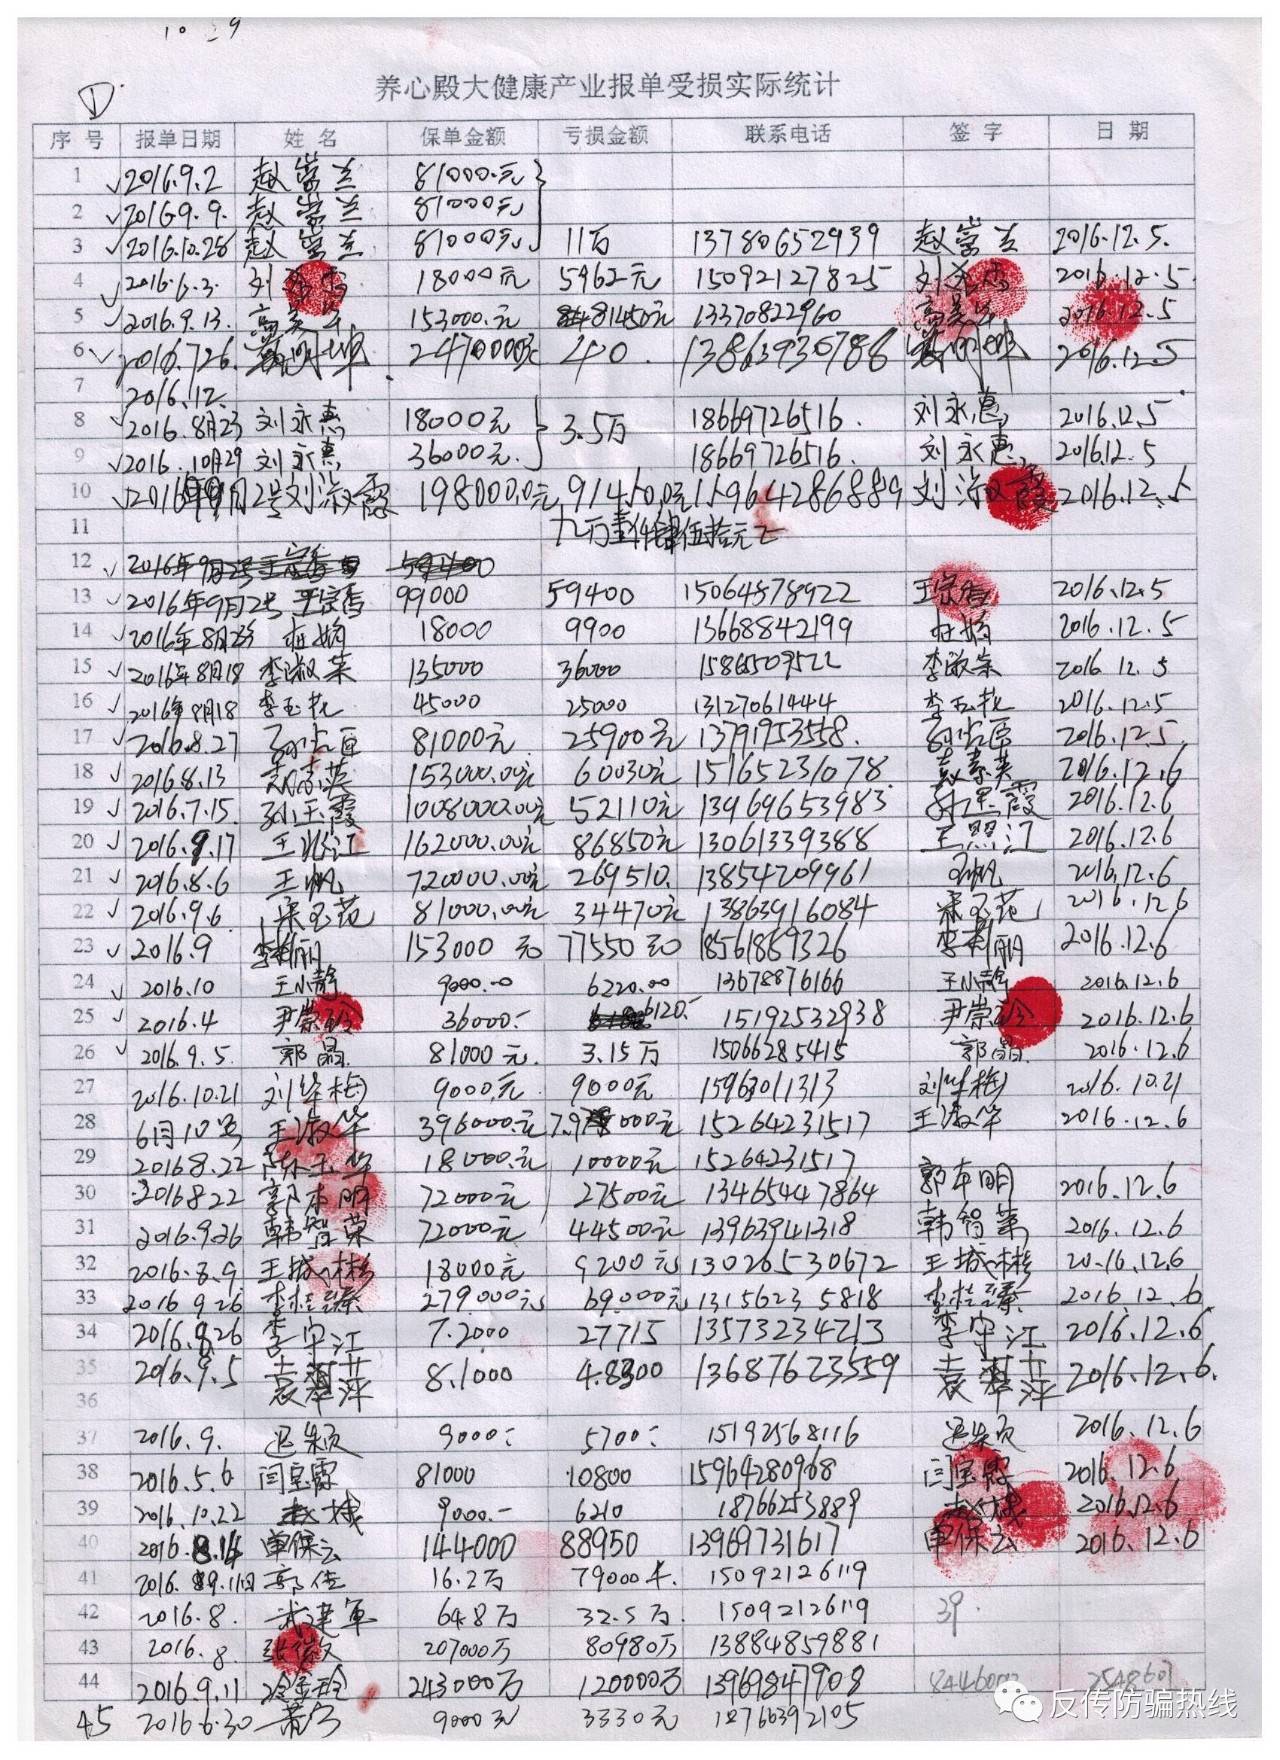 10 29
① 养心殿大健康产业报单受损实际统计
序号 报单日期 姓名 保单金额 亏损金额 联系电话 签字 日期
1 ✓ 2016.9.2 赵崇兰 81000.元
2 ✓ 2016.9.9. 赵崇兰 81000元
3 ✓ 2016.10.28 赵崇兰 81000元 11万 13780652939 赵崇兰 2016.12.5.
4 ✓ 2016.6.3. 刘 18000元 5962元 15092127825 刘 2016.12.5
5 ✓ 2016.9.13. 高美华 153000.元 81450元 13370822960 高美华 2016.12.5
6 ✓ 2016.7.26. 247000元 40. 13863930788 2016.12.5
7 2016.12
8 ✓ 2016.8月23 刘永惠 18000元 3.5万 18669726516. 刘永惠 2016.12.5
9 ✓ 2016.10月29 刘永惠 36000元. 18669726516. 刘永惠 2016.12.5
10 ✓ 2016年9月2号 刘淑霞 198000.0元 91450.0元 15964286889 刘淑霞 2016.12.5
11 九万壹仟肆伍拾元
12 ✓ 2016年9月2号 59400
13 ✓ 2016年9月2号 王宗香 99000 59400 15064578922 王宗香 2016.12.5
14 ✓ 2016年8月23 杜娟 18000 9900 13668842199 杜娟 2016.12.5
15 ✓ 2016年8月18 李淑荣 135000 36000 1586509522 李淑荣 2016.12.5
16 ✓ 2016年8月18 李玉花 45000 25000 13127061444 李玉花 2016.12.5
17 ✓ 2016.8.27 81000元 25900元 13791953558. 2016.12.5.
18 ✓ 2016.8.13 153000.00元 60030元 15165231078. 2016.12.6
19 ✓ 2016.7.15. 孙玉霞 1008000.00元 52110元 13969653983. 孙玉霞 2016.12.6
20 ✓ 2016.9.17 王兆江 162000.00元 86850元 13061339388 王照江 2016.12.6
21 ✓ 2016.8.6 王帆 720000.00元 269510. 13854209961 王帆 2016.12.6
22 ✓ 2016.9.6. 宋玉花 81000.00元 34470元 13863916084 宋玉花 2016.12.6
23 ✓ 2016.9 李莉丽 153000元 77550元 18561859326 李莉丽 2016.12.6
24 ✓ 2016.10 王小静 9000.00 6220.00 13678876166 王小静 2016.12.6
25 ✓ 2016.4 尹崇玲 36000.- 6120.- 15192532938 尹崇玲 2016.12.6
26 ✓ 2016.9.5. 郭晶 81000元. 3.15万 15066285415 郭晶. 2016.12.6
27 2016.10.21 刘华梅 9000元. 9000元 15963011313 刘华梅 2016.10.21
28 6月10号 王淑华 396000.元 15264231517 王淑华 2016.12.6
29 2016.8.22 陈玉华 18000.元 10000元 15264231517
30 2016 8.22 郭本明 72000元 27500元 13465447864 郭本明 2016.12.6
31 2016.9.26 韩智荣 72000元 44500元 13963941318 韩智荣 2016.12.6
32 2016.8.9 王城彬 18000元 9200元 13026530672 王城彬 2016.12.6
33 2016 9.26 李桂臻 279000元 69000元 13156235818 李桂臻 2016.12.6
34 2016.8.26 李守江 7.2000 27715 13573234713 李守江 2016.12.6
35 2016.9.5 袁翠萍 8.1000 4.8300 13687623559 袁翠萍 2016.12.6.
36
37 2016.9. 迟来页 9000.- 5700.- 15192568116 迟来页 2016.12.6
38 2016.5.6 闫宝霞 81000 10800 15964280968 闫宝霞 2016.12.6
39 2016.10.22 9000.- 6210 18766253889 2016.12.6
40 2016.8.14 单保云 144000 88950 13969731617 单保云 2016.12.6
41 2016.9.11日 郭佳 16.2万 79000 15092126119
42 2016.8. 武建军 64.8万 32.5万. 15092126119 39.
43 2016.8. 张徽 207000万 80980万 13884859881
44 2016.9.11 冷金玲 243000万 120000万 13969847908 8446000
45 2016.6.30 9000元 3330元 18766392105
反传防骗热线